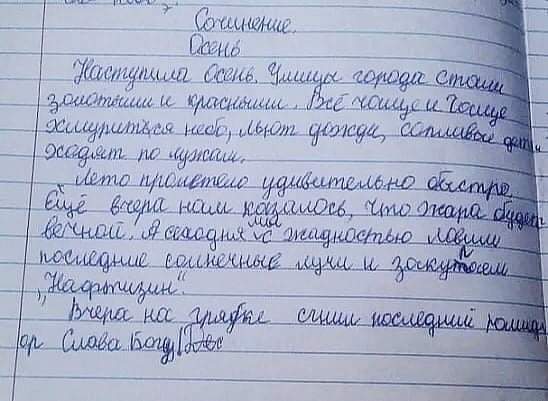 Сочинение.
Осень
Наступила Осень. Улицы города стали
золотыми и красными. Всё чаще и чаще
хмуриться небо, льют дожди, сопливые дети
ходят по лужам.
Лето пролетело удивительно быстро
Ещё вчера нам казалось, что жара будет
вечной. А сегодня мы с жадностью ловим
последние солнечные лучи и закупаем
„Нафтизин“.
Вчера на грядке сгнил последний помид
ор Слава Богу!